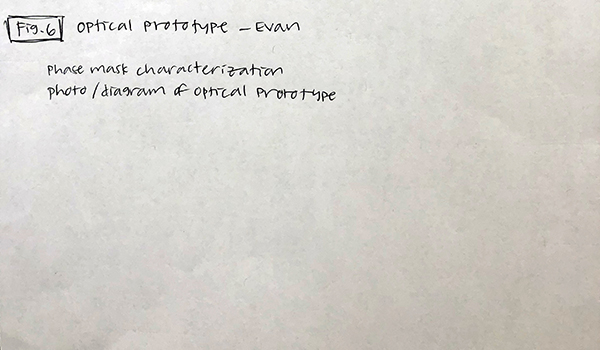 Fig. 6 Optical Prototype - Evan
phase mask characterization
photo / diagram of optical prototype